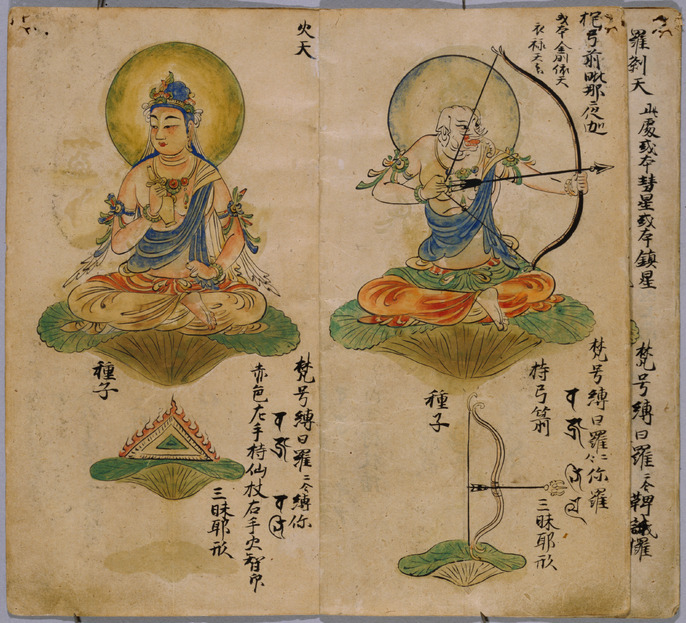 羅刹天 此處或本彗星或本鎮星
梵号縛日羅二合
抱弓箭毗那夜迦
或本金剛依天
梵号縛日羅二合你羅
持弓箭
種子
三昧耶形
火天
梵号縛日羅二合縛你
赤色左手持仙杖右手火智印
種子
三昧耶形